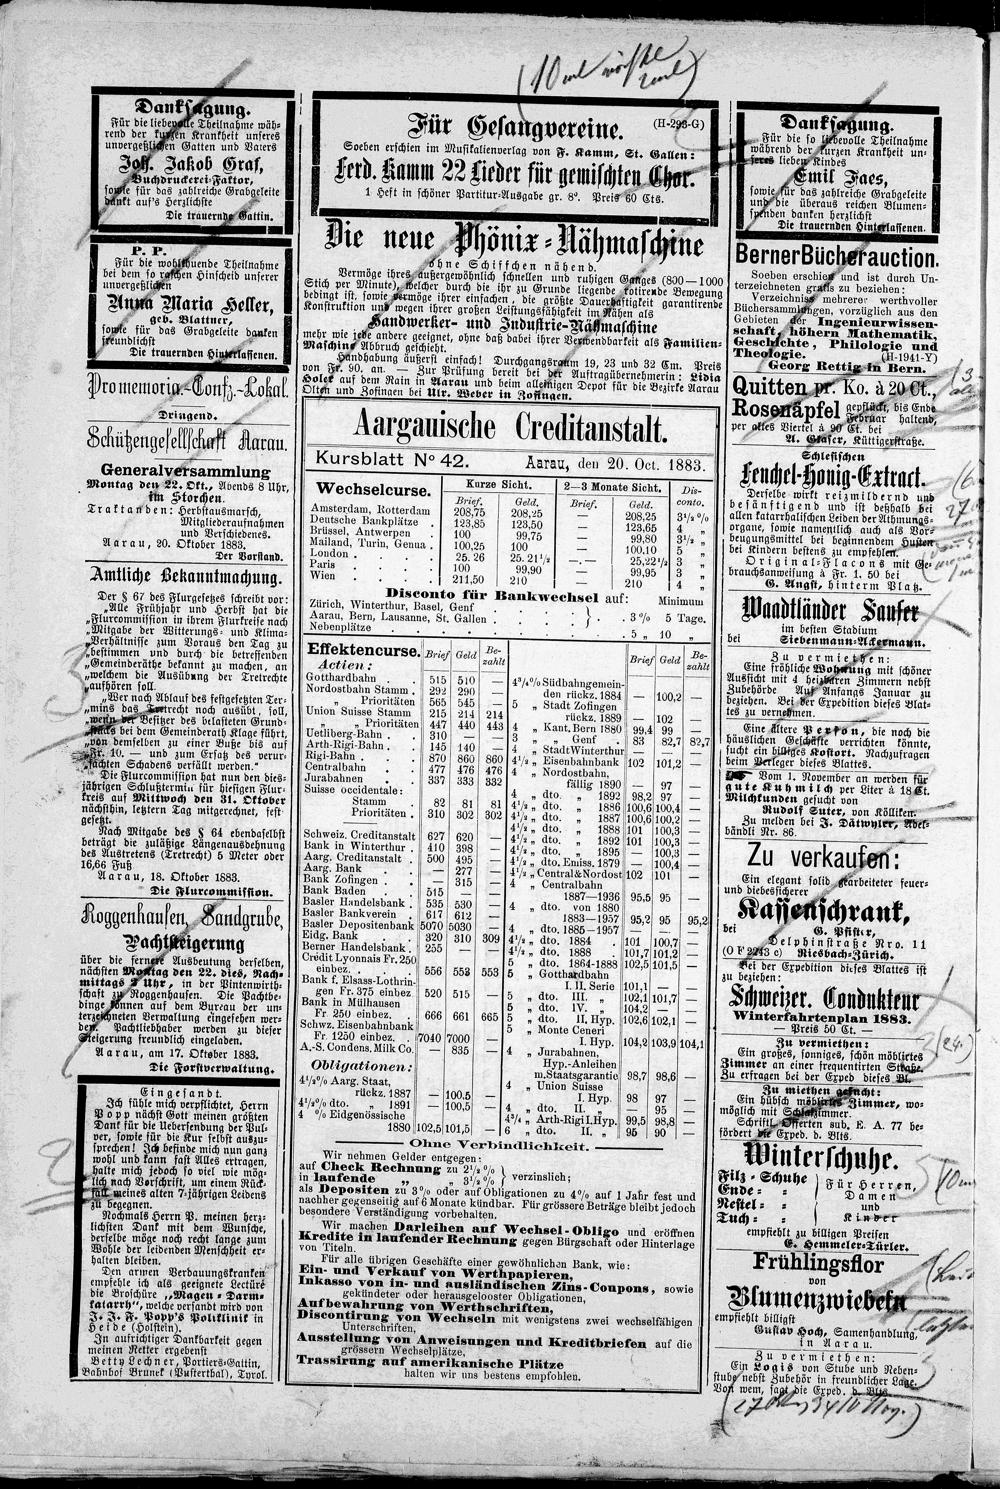 Danksagung.
Für die liebevolle Theilnahme wäh-
rend der kurzen Krankheit unseres
unvergeßlichen Gatten und Vaters
Joh. Jakob Graf,
Buchdruckerei-Faktor,
sowie für das zahlreiche Grabgeleite
dankt auf's Herzlichste
Die trauernde Gattin.
P. P.
Für die wohlthuende Theilnahme
bei dem so raschen Hinscheid unserer
unvergeßlichen
Anna Maria Heller,
geb. Blattner,
sowie für das Grabgeleite danken
freundlichst
Die trauernden Hinterlassenen.
Promemoria.-Conf3.-Lokal.
Dringend.
Schützengesellschaft Aarau.
Generalversammlung
Montag den 22. Okt., Abends 8 Uhr,
im Storchen.
Traktanden: Herbstausmarsch,
Mitgliederaufnahmen
und Verschiedenes.
Aarau, 20. Oktober 1883.
Der Vorstand.
Amtliche Bekanntmachung.
Der § 67 des Flurgesetzes schreibt vor:
„Alle Frühjahr und Herbst hat die
„Flurcommission in ihrem Flurkreise nach
„Mitgabe der Witterungs- und Klima-
„Verhältnisse zum Voraus den Tag zu
„bestimmen und durch die betreffenden
„Gemeinderäthe bekannt zu machen, an
„welchem die Ausübung der Tretrechte
„aufhören soll.
„Wer nach Ablauf des festgesetzten Ter-
„mins das Tretrecht noch ausübt, soll,
„wenn der Besitzer des belasteten Grund-
„stücks bei dem Gemeinderath Klage führt,
„von demselben zu einer Buße bis auf
„Fr. 40. — und zum Ersatz des verur-
„sachten Schadens verfällt werden."
Die Flurcommission hat nun den dies-
jährigen Schlußtermin für hiesigen Flur-
kreis auf Mittwoch den 31. Oktober
nächsthin, letztern Tag mitgerechnet, fest-
gesetzt.
Nach Mitgabe des § 64 ebendaselbst
beträgt die zuläßige Längenausdehnung
des Austretens (Tretrecht) 5 Meter oder
16,66 Fuß.
Aarau, 18. Oktober 1883.
Die Flurcommission.
Roggenhausen, Sandgrube,
Pachtsteigerung
über die fernere Ausbeutung derselben,
nächsten Montag den 22. dies, Nach-
mittags 2 Uhr, in der Pintenwirth-
schaft zu Roggenhausen. Die Pachtbe-
dinge können auf dem Bureau der un-
terzeichneten Verwaltung eingesehen wer-
den. Pachtliebhaber werden zu dieser
Steigerung freundlich eingeladen.
Aarau, am 17. Oktober 1883.
Die Forstverwaltung.
Eingesandt.
Ich fühle mich verpflichtet, Herrn
Popp nächst Gott meinen größten
Dank für die Uebersendung der Pul-
ver, sowie für die Kur selbst auszu-
sprechen! Ich befinde mich nun ganz
wohl und kann fast Alles ertragen,
halte mich jedoch so viel wie mög-
lich nach Vorschrift, um einem Rück-
fall meines alten 7-jährigen Leidens
zu begegnen.
Nochmals Herrn P. meinen herz-
lichsten Dank mit dem Wunsche,
derselbe möge noch recht lange zum
Wohle der leidenden Menschheit er-
halten bleiben.
Den armen Verdauungskranken
empfehle ich als geeignete Lectüre
die Broschüre „Magen-Darm-
katarrh", welche versandt wird von
J. J. F. Popp's Poliklinik in
Heide (Holstein).
In aufrichtiger Dankbarkeit gegen
meinen Retter ergebenst
Betty Lechner, Portiers-Gattin,
Bahnhof Bruneck (Pusterthal), Tyrol.
Für Gesangvereine. (H-293-G)
Soeben erschien im Musikalienverlag von F. Kamm, St. Gallen:
Ferd. Kamm 22 Lieder für gemischten Chor.
1 Heft in schöner Partitur-Ausgabe gr. 8º. Preis 60 Cts.
Die neue Phönix-Nähmaschine
ohne Schiffchen nähend.
Vermöge ihres außergewöhnlich schnellen und ruhigen Ganges (800—1000
Stich per Minute), welcher durch die ihr zu Grunde liegende rotirende Bewegung
bedingt ist, sowie vermöge ihrer einfachen, die größte Dauerhaftigkeit garantirende
Konstruktion und wegen ihrer großen Leistungsfähigkeit im Nähen als
Handwerker- und Industrie-Nähmaschine
mehr wie jede andere geeignet, ohne daß dabei ihrer Verwendbarkeit als Familien-
Maschine Abbruch geschieht.
Handhabung äußerst einfach! Durchgangsraum 19, 23 und 32 Cm. Preis
von Fr. 90. an. — Zur Prüfung bereit bei der Auftragübernehmerin: Lidia
Holer auf dem Rain in Aarau und beim alleinigen Depot für die Bezirke Aarau
Olten und Zofingen bei Ulr. Weber in Zofingen.
Aargauische Creditanstalt.
Kursblatt Nº 42. Aarau, den 20. Oct. 1883.
Wechselcurse. Kurze Sicht. 2—3 Monate Sicht. Dis-
conto.
Brief. Geld. Brief. Geld.
Amsterdam, Rotterdam 208,75 208,25 — 208,25 3½ %
Deutsche Bankplätze . 123,85 123,50 — 123,65 4 „
Brüssel, Antwerpen . 100 99,75 — 99,80 3½ „
Mailand, Turin, Genua . 100,25 100 — 100,10 5 „
London . . . . 25.26 25.21½ — 25,22½ 3 „
Paris . . . . 100 99,90 — 99,95 3 „
Wien . . . . 211,50 210 — 210 4 „
Disconto für Bankwechsel auf: Minimum
Zürich, Winterthur, Basel, Genf
Aarau, Bern, Lausanne, St. Gallen . . . 3 % 5 Tage.
Nebenplätze . . . . . 5 „ 10 „
Effektencurse. Brief Geld Be-
zahlt
Actien:
Gotthardbahn . . 515 510 —
Nordostbahn Stamm . 292 290 —
„ Prioritäten 565 545 —
Union Suisse Stamm 215 214 214
„ „ Prioritäten 447 440 443
Uetliberg-Bahn . . 310 — —
Arth-Rigi-Bahn . . 145 140 —
Rigi-Bahn . . . 870 860 860
Centralbahn . . 477 476 476
Jurabahnen . . 337 333 332
Suisse occidentale:
Stamm . 82 81 81
Prioritäten . 310 302 302
Schweiz. Creditanstalt 627 620 —
Bank in Winterthur . 410 398 —
Aarg. Creditanstalt . 500 495 —
Aarg. Bank . . — 277 —
Bank Zofingen . . — 315 —
Bank Baden . . 515 — —
Basler Handelsbank . 535 530 —
Basler Bankverein . 617 612 —
Basler Depositenbank 5070 5030 —
Eidg. Bank . . 320 310 309
Berner Handelsbank . 255 — —
Crédit Lyonnais Fr. 250
einbez. . . 556 553 553
Bank f. Elsass-Lothrin-
gen Fr. 375 einbez. 520 515 —
Bank in Mülhausen
Fr. 250 einbez. . 666 661 665
Schwz. Eisenbahnbank
Fr. 1250 einbez. . 7040 7000 —
A.-S. Condens. Milk Co. — 835 —
Obligationen:
4½% Aarg. Staat,
rückz. 1887 — 100,5 —
4½% dto. „ 1891 — 100,5 —
4 % Eidgenössische
1880 102,5 101,5 —
Brief Geld Be-
zahlt
4¾% Südbahngemein-
den rückz. 1884 — 100,2 —
5 „ Stadt Zofingen
rückz. 1889 — 102 —
4 „ Kant. Bern 1880 99,4 99 —
3 „ Genf 83 82,7 82,7
4 „ Stadt Winterthur — — —
4½ „ Eisenbahnbank 102 101,2 —
4 „ Nordostbahn,
fällig 1890 — 97 —
4 „ dto. „ 1892 98,2 97 —
4½ „ dto. „ 1886 100,6 100,4 —
4½ „ dto. „ 1887 100,6 100,2 —
4½ „ dto. „ 1888 101 100,3 —
4½ „ dto. „ 1892 101 100,3 —
4½ „ dto. „ 1895 — 100,3 —
4½ „ dto. Emiss. 1879 — 100,4 —
4½ „ Central & Nordost 102 101 —
4 „ Centralbahn
1887—1936 95,5 95 —
4 „ dto. von 1880
1883—1957 95,2 95 95,2
4 „ dto. 1885—1957 — — —
4½ „ dto. 1884 101 100,7 —
4½ „ dto. 1888 101,7 101,2 —
5 „ dto. 1864-1868 102,5 101,5 —
5 „ Gotthardbahn
I. II. Serie 101,1 — —
5 „ dto. III. „ 102,1 101,7 —
5 „ dto. IV. „ 104,2 — —
5 „ dto. II. Hyp. 102,6 102,1 —
5 „ Monte Ceneri
I. Hyp. 104,2 103,9 104,1
4 „ Jurabahnen,
Hyp.-Anleihen
m. Staatsgarantie 98,7 98,6 —
4 „ Union Suisse
I. Hyp. 98 97 —
4 „ dto. II. „ — 95 —
4¾ „ Arth-Rigi I. Hyp. 99,5 98,8 —
6 „ dto. II. „ 95 90 —
Ohne Verbindlichkeit.
Wir nehmen Gelder entgegen:
auf Check Rechnung zu 2½ %
in laufende „ „ 3½ % verzinslich;
als Depositen zu 3% oder auf Obligationen zu 4% auf 1 Jahr fest und
nachher gegenseitig auf 6 Monate kündbar. Für grössere Beträge bleibt jedoch
besondere Verständigung vorbehalten.
Wir machen Darleihen auf Wechsel-Obligo und eröffnen
Kredite in laufender Rechnung gegen Bürgschaft oder Hinterlage
von Titeln.
Für alle übrigen Geschäfte einer gewöhnlichen Bank, wie:
Ein- und Verkauf von Werthpapieren,
Inkasso von in- und ausländischen Zins-Coupons, sowie
gekündeter oder herausgelooster Obligationen,
Aufbewahrung von Werthschriften,
Discontirung von Wechseln mit wenigstens zwei wechselfähigen
Unterschriften,
Ausstellung von Anweisungen und Kreditbriefen auf die
grössern Wechselplätze,
Trassirung auf amerikanische Plätze
halten wir uns bestens empfohlen.
Danksagung.
Für die so liebevolle Theilnahme
während der kurzen Krankheit un-
seres lieben Kindes
Emil Faes,
sowie für das zahlreiche Grabgeleite
und die überaus reichen Blumen-
spenden danken herzlichst
Die trauernden Hinterlassenen.
Berner Bücherauction.
Soeben erschien und ist durch Un-
terzeichneten gratis zu beziehen:
Verzeichniß mehrerer werthvoller
Büchersammlungen, vorzüglich aus den
Gebieten der Ingenieurwissen-
schaft, höhern Mathematik,
Geschichte, Philologie und
Theologie. (H-1941-Y)
Georg Rettig in Bern.
Quitten pr. Ko. à 20 Ct.,
Rosenäpfel gepflückt, bis Ende
Februar haltend,
per altes Viertel à 90 Ct. bei
A. Glaser, Küttigerstraße.
Schlesischen
Fenchel-Honig-Extract.
Derselbe wirkt reizmildernd und
besänftigend und ist deßhalb bei
allen katarrhalischen Leiden der Athmungs-
organe, sowie namentlich auch als Vor-
beugungsmittel bei beginnendem Husten
bei Kindern bestens zu empfehlen.
Original-Flacons mit Ge-
brauchsanweisung à Fr. 1. 50 bei
G. Angst, hinterm Platz.
Waadtländer Sauser
im besten Stadium
bei Siebenmann-Ackermann.
Zu vermiethen:
Eine fröhliche Wohnung mit schöner
Aussicht mit 4 heizbaren Zimmern nebst
Zubehörde Auf Anfangs Januar zu
beziehen. Bei der Expedition dieses Blat-
tes zu vernehmen.
Eine ältere Person, die noch die
häuslichen Geschäfte verrichten könnte,
sucht ein billiges Kostort. Nachzufragen
beim Verleger dieses Blattes.
Vom 1. November an werden für
gute Kuhmilch per Liter à 18 Ct.
Milchkunden gesucht von
Rudolf Suter, von Kölliken.
Zu melden bei J. Dätwyler, Adel-
bändli Nr. 86.
Zu verkaufen:
Ein elegant solid gearbeiteter feuer-
und diebessicherer
Kassenschrank,
bei G. Pfister,
Delphinstraße Nro. 11
(O F 2243 c) Riesbach-Zürich.
Bei der Expedition dieses Blattes ist
zu beziehen:
Schweizer. Condukteur
Winterfahrtenplan 1883.
— Preis 50 Ct. —
Zu vermiethen:
Ein großes, sonniges, schön möblirtes
Zimmer an einer frequentirten Straße.
Zu erfragen bei der Exped dieses Bl.
Zu miethen gesucht:
Ein hübsch möblirtes Zimmer, wo-
möglich mit Schlafzimmer.
Schriftl. Offerten sub. E. A. 77 be-
fördert die Exped. d. Blts.
Winterschuhe.
Filz-Schuhe
Ende- „
Nestel- „
Tuch- „
Für Herren,
Damen
und
Kinder
empfiehlt zu billigen Preisen
E. Hemmeler-Türler.
Frühlingsflor
von
Blumenzwiebeln
empfiehlt billigst
Gustav Hoch, Samenhandlung,
in Aarau.
Zu vermiethen:
Ein Logis von Stube und Neben-
stube nebst Zubehör in freundlicher Lage.
Von wem, sagt die Exped. d. Blts.